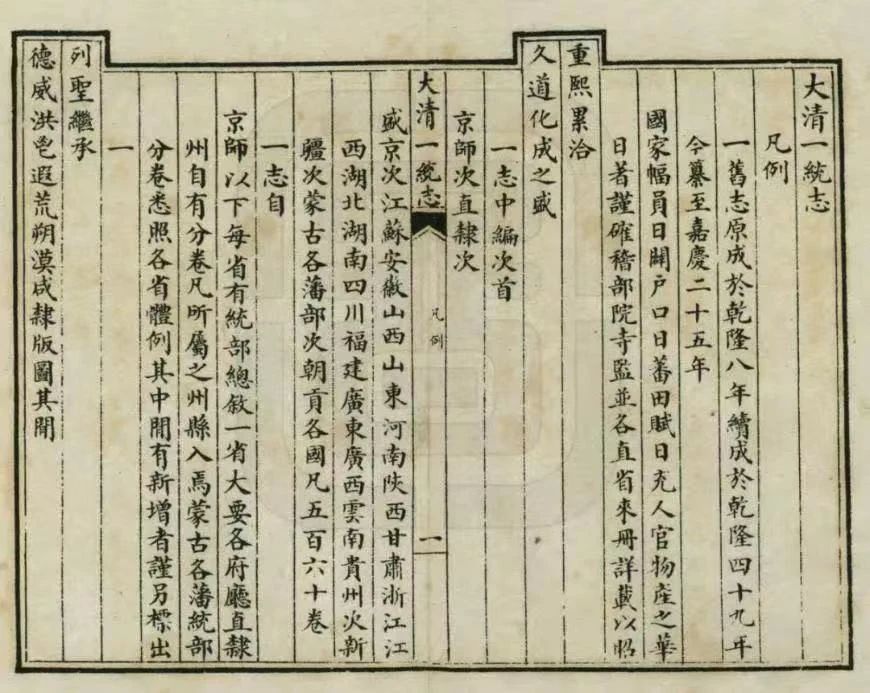 大清一統志
凡例
一舊志原成於乾隆八年續成於乾隆四十九年
今纂至嘉慶二十五年
國家幅員日闢戶口日蕃田賦日充人官物產之華
日著謹確稽部院寺監並各直省來冊詳載以昭
重熙累洽
久道化成之盛
一志中編次首
京師次直隸次
大清一統志
凡例
一
盛京次江蘇安徽山西山東河南陝西甘肅浙江江
西湖北湖南四川福建廣東廣西雲南貴州次新
疆次蒙古各藩部次朝貢各國凡五百六十卷
一志自
京師以下每省有統部總敘一省大要各府廳直隸
州自有分卷凡所屬之州縣入焉蒙古各藩統部
分卷悉照各省體例其中閒有新增者謹另標出
一
列聖繼承
德威洪鬯遐荒朔漠咸隸版圖其閒